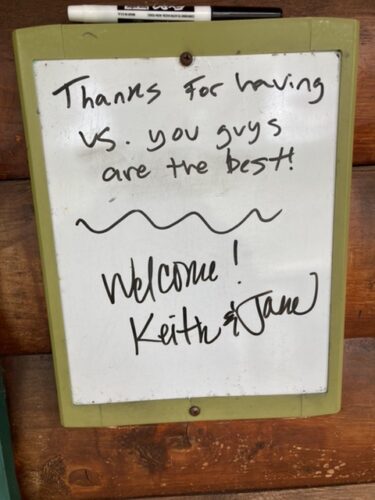 Thanks for having
us. you guys
are the best!
Welcome!
Keith & Jane